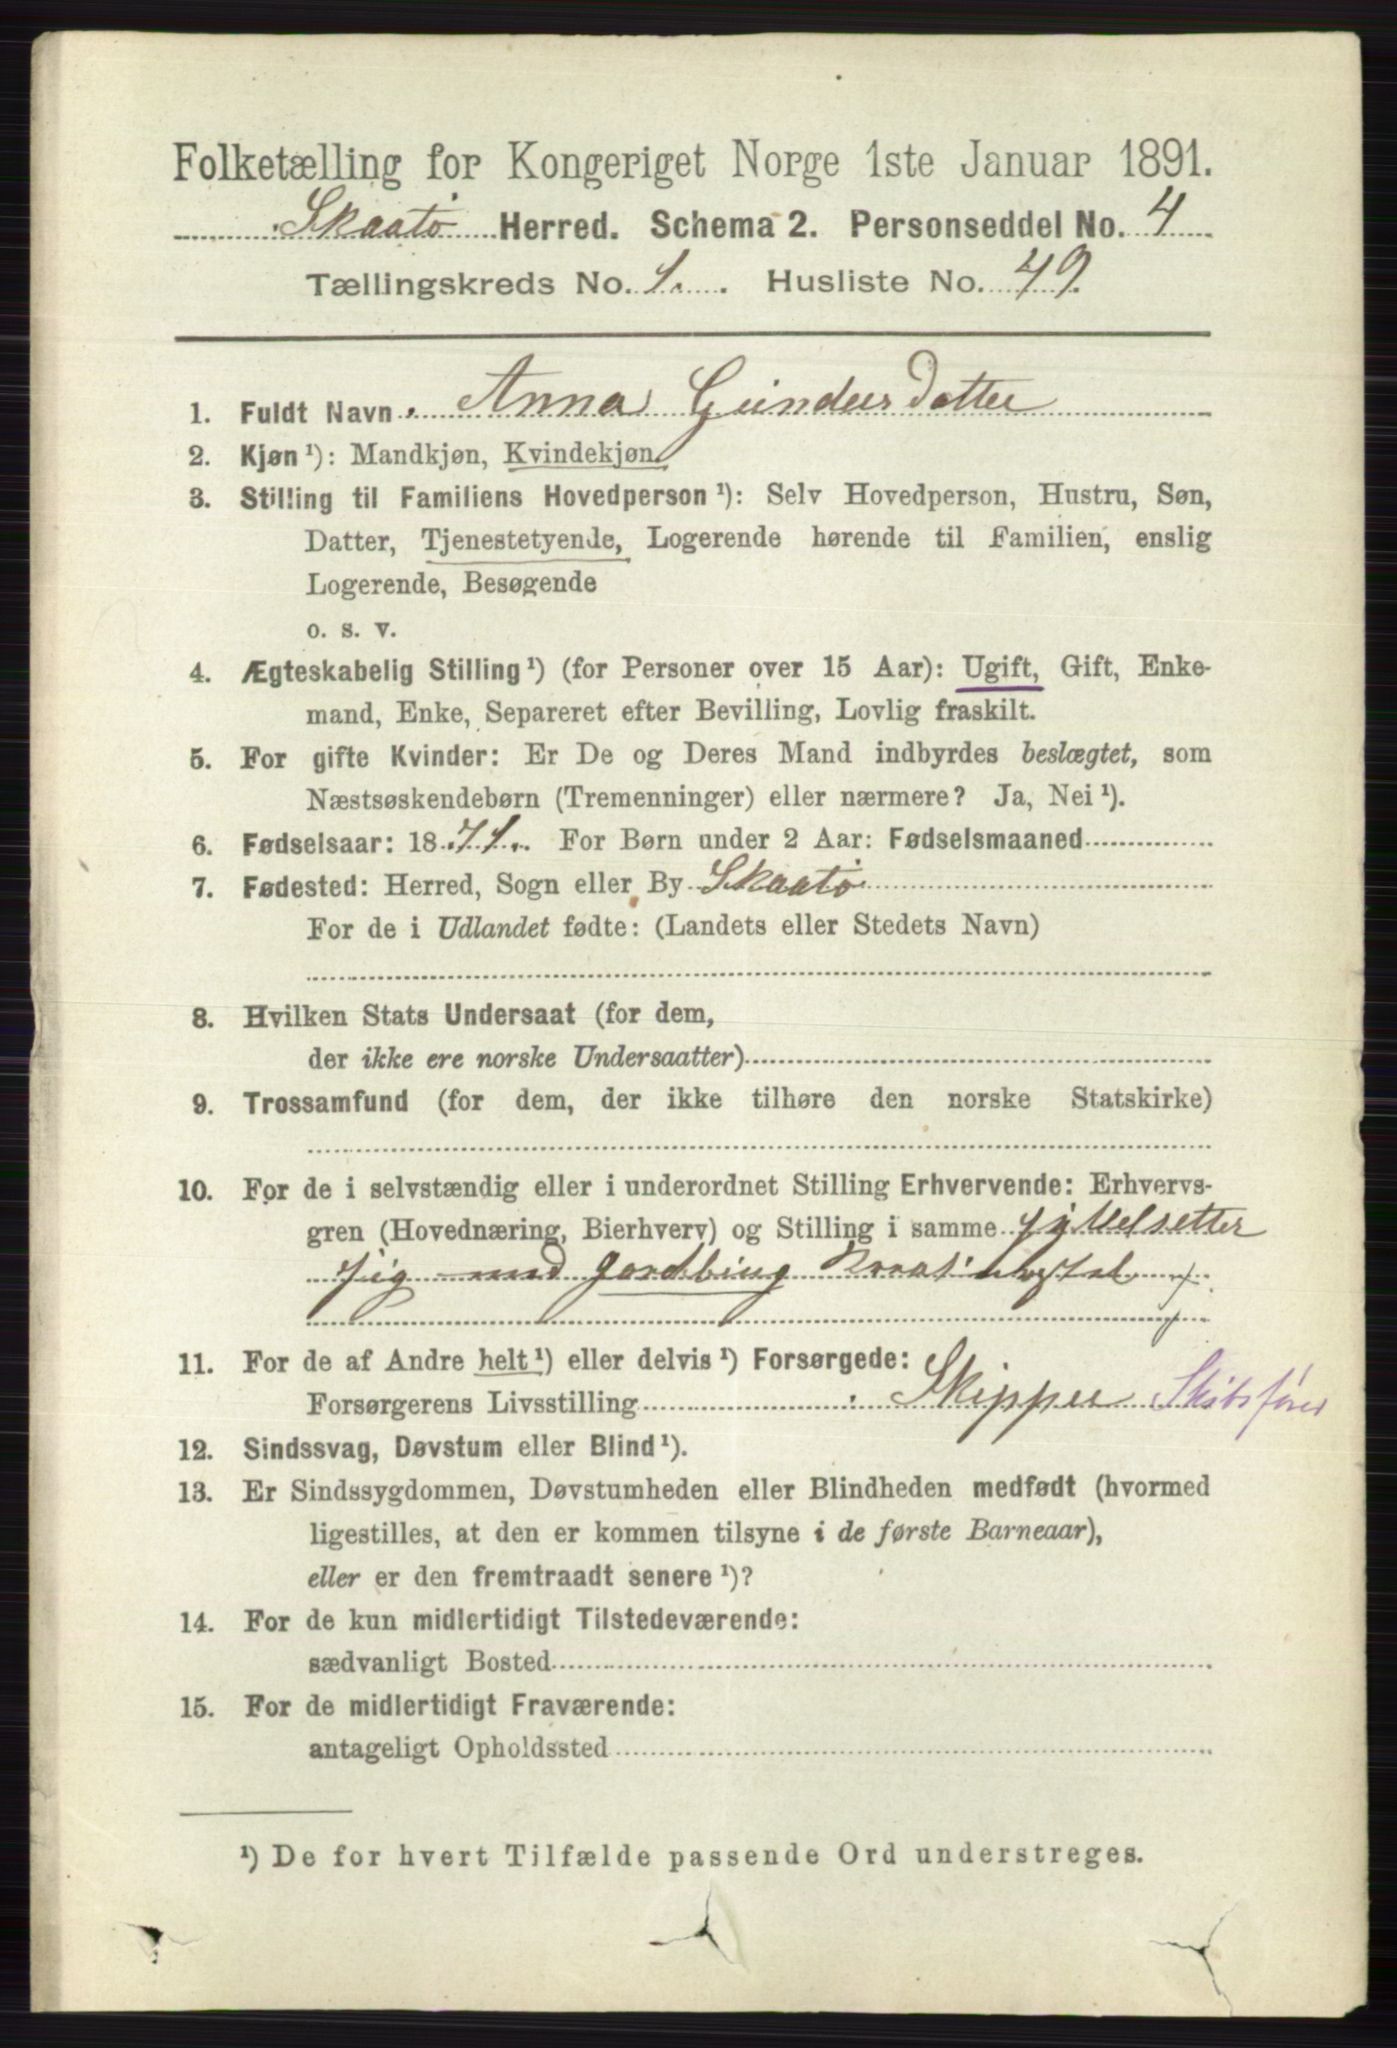 Folketælling for Kongeriget Norge 1ste Januar 1891.
Skaatø Herred. Schema 2. Personseddel No. 4
Tællingskreds No. 1. Husliste No. 49.
1. Fuldt Navn. Anna Gundersdatter
2. Kjøn ¹): Mandkjøn, Kvindekjøn.
3. Stilling til Familiens Hovedperson ¹): Selv Hovedperson, Hustru, Søn,
Datter, Tjenestetyende, Logerende hørende til Familien, enslig
Logerende, Besøgende
o. s. v.
4. Ægteskabelig Stilling ¹) (for Personer over 15 Aar): Ugift, Gift, Enke-
mand, Enke, Separeret efter Bevilling, Lovlig fraskilt.
5. For gifte Kvinder: Er De og Deres Mand indbyrdes beslægtet, som
Næstsøskendebørn (Tremenninger) eller nærmere? Ja, Nei ¹).
6. Fødselsaar: 1871. For Børn under 2 Aar: Fødselsmaaned
7. Fødested: Herred, Sogn eller By Skaatø
For de i Udlandet fødte: (Landets eller Stedets Navn)
8. Hvilken Stats Undersaat (for dem,
der ikke ere norske Undersaatter)
9. Trossamfund (for dem, der ikke tilhøre den norske Statskirke)
10. For de i selvstændig eller i underordnet Stilling Erhvervende: Erhvervs-
gren (Hovednæring, Bierhverv) og Stilling i samme
sig med
11. For de af Andre helt ¹) eller delvis ¹) Forsørgede:
Forsørgerens Livsstilling Skipper Skibsfører
12. Sindssvag, Døvstum eller Blind ¹).
13. Er Sindssygdommen, Døvstumheden eller Blindheden medfødt (hvormed
ligestilles, at den er kommen tilsyne i de første Barneaar),
eller er den fremtraadt senere ¹)?
14. For de kun midlertidigt Tilstedeværende:
sædvanligt Bosted
15. For de midlertidigt Fraværende:
antageligt Opholdssted
¹) De for hvert Tilfælde passende Ord understreges.